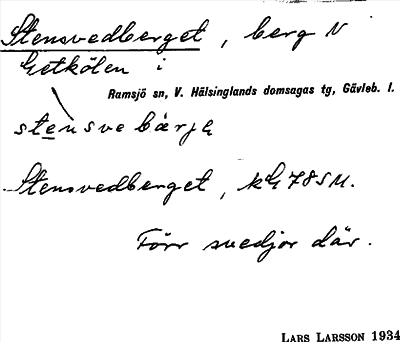 Stensvedberget, berg N
Getkölen i
Ramsjö sn, V. Hälsinglands domsagas tg, Gävleb. l.
stensvebärja
Stensvedberget, kG 78 SM.
Förr svedjor där.
LARS LARSSON 1934